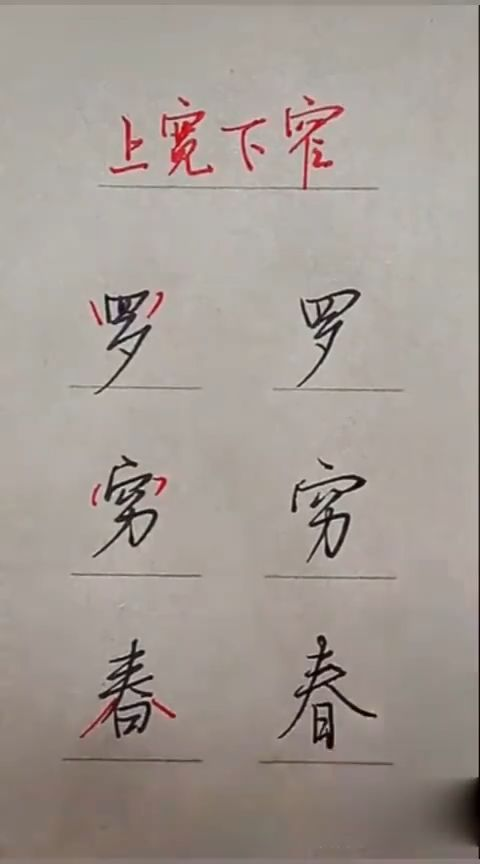 上宽下窄
罗 罗
穷 穷
春 春